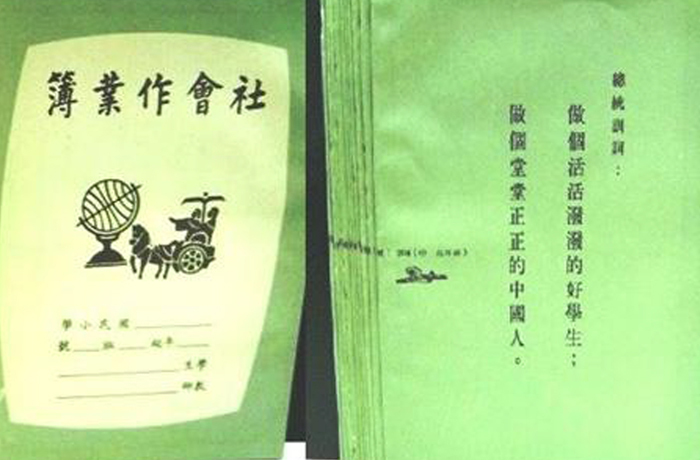 社會作業簿
國民小學
年級 班 號
學生
教師
總統訓詞：
做個活活潑潑的好學生；
做個堂堂正正的中國人。